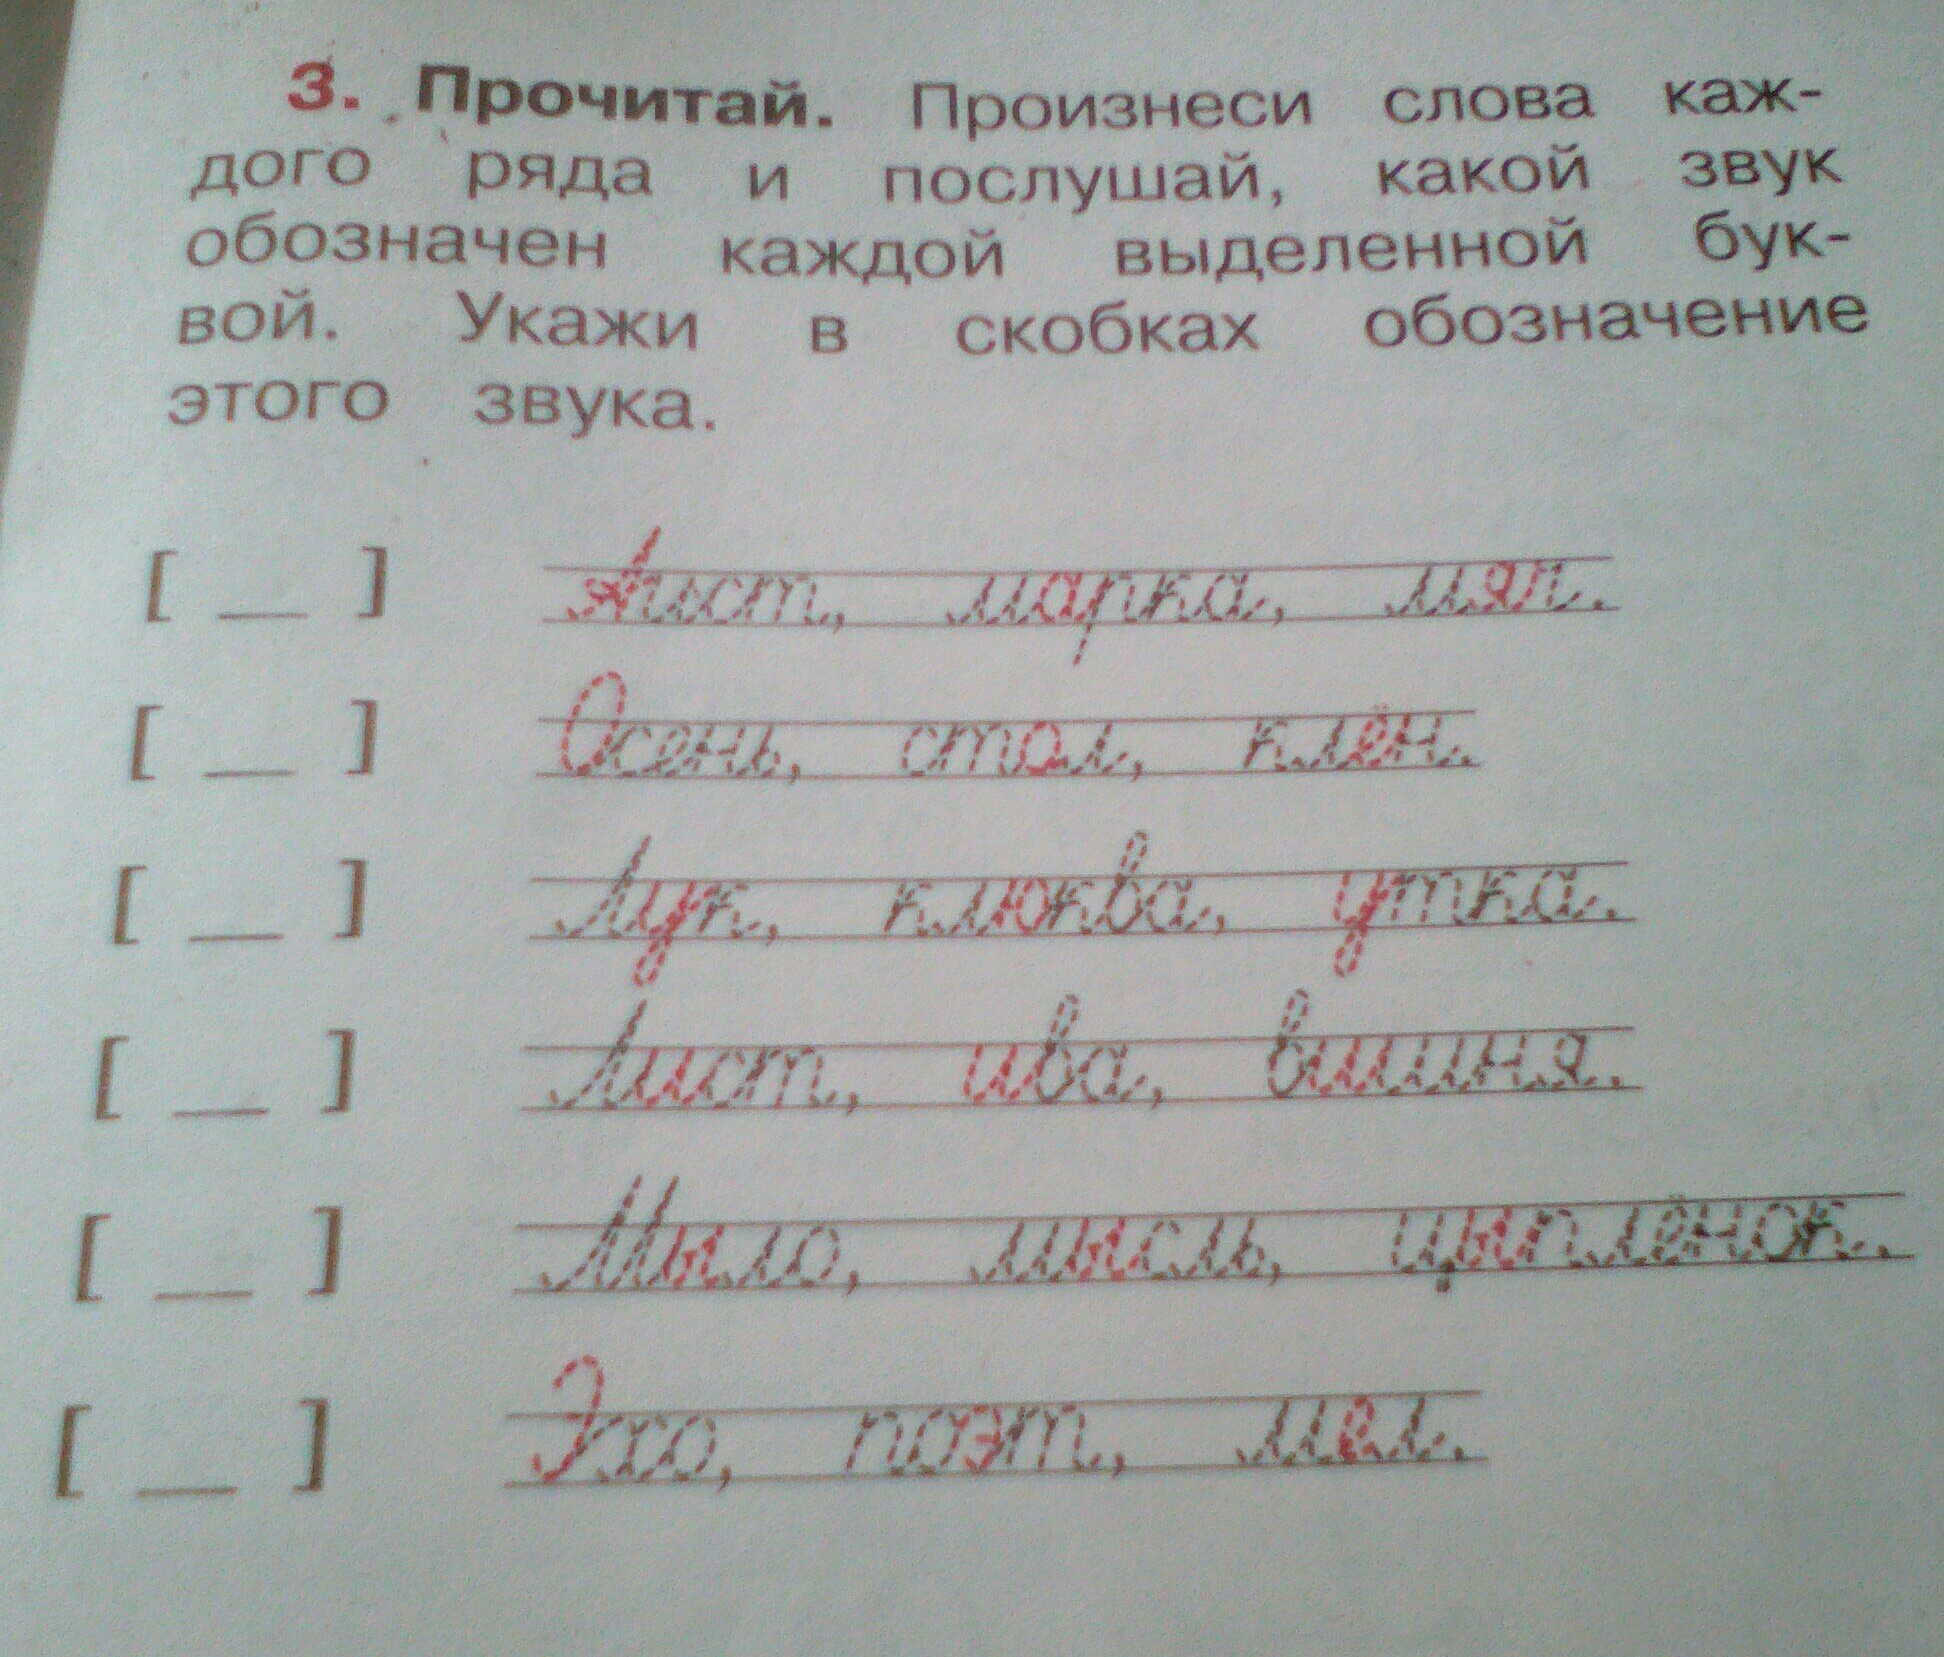 3. Прочитай. Произнеси слова каж-
дого ряда и послушай, какой звук
обозначен каждой выделенной бук-
вой. Укажи в скобках обозначение
этого звука.
[ __ ] Аист, марка, мял.
[ __ ] Осень, стол, клён.
[ __ ] Лук, клюква, утка.
[ __ ] Лист, ива, вишня.
[ __ ] Мыло, мысль, цыплёнок.
[ __ ] Эхо, поэт, мел.